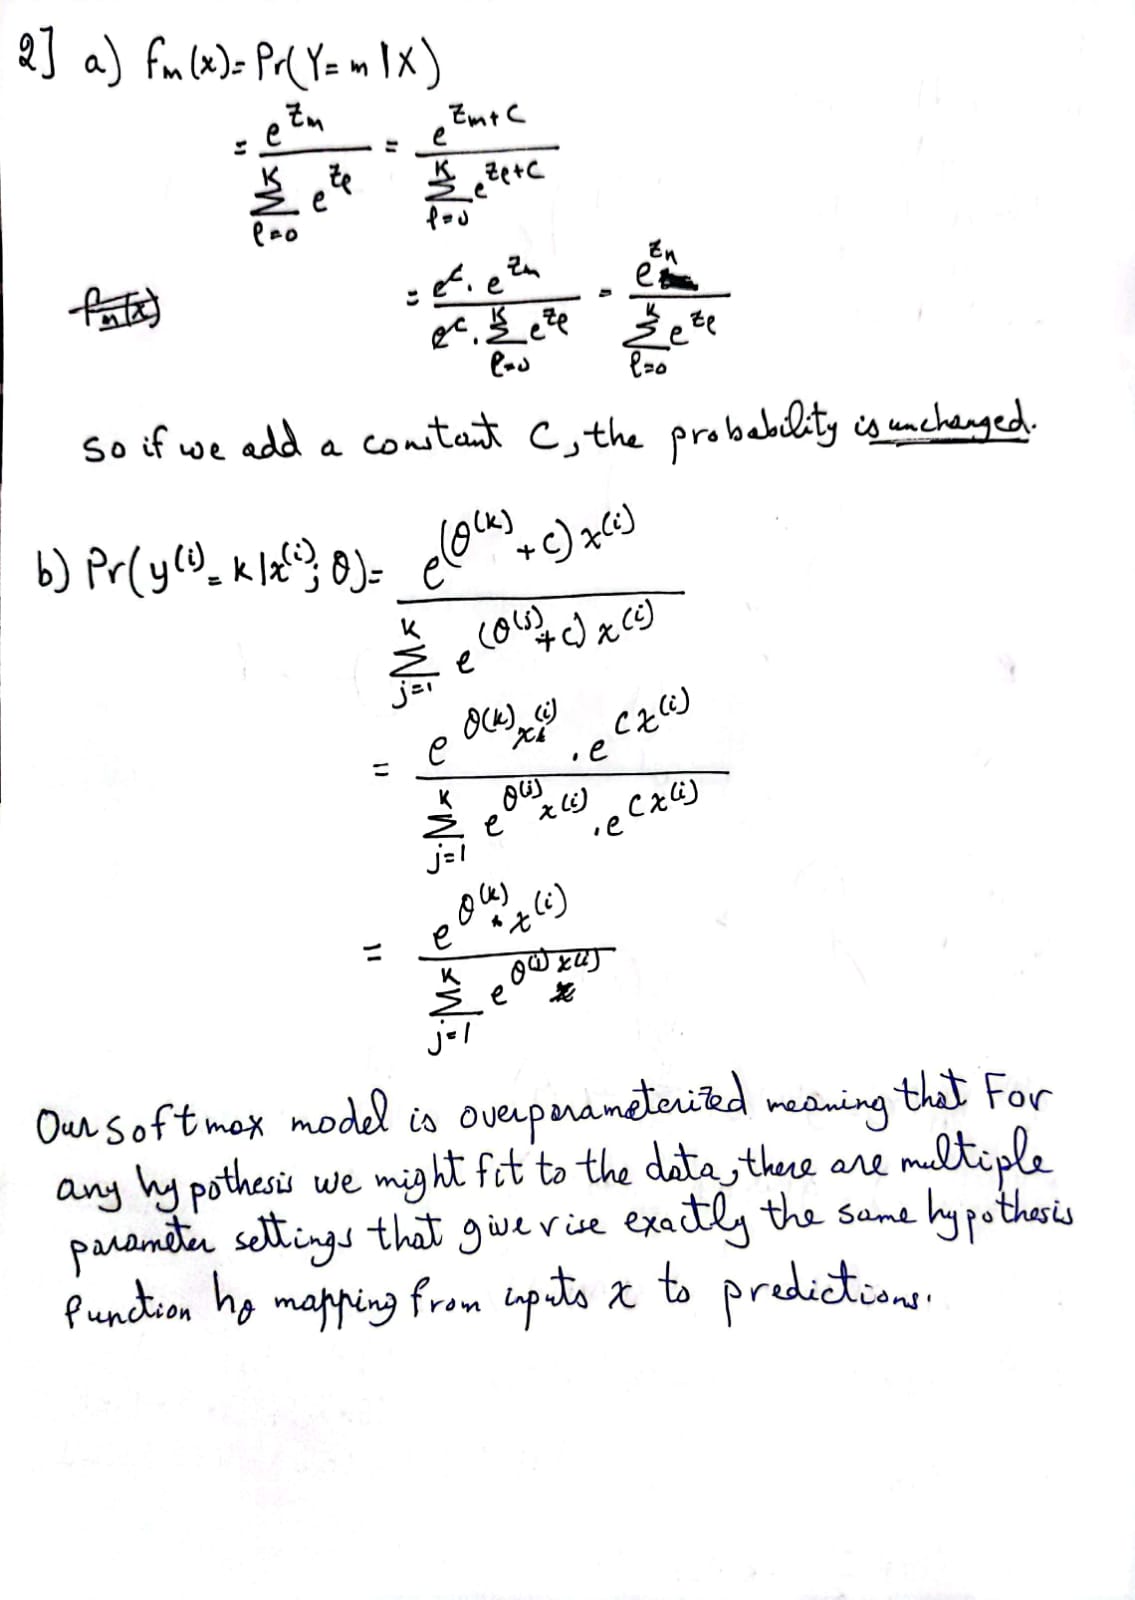 2] a) fm(x) = Pr(Y = m | X)
= e^{Zm} / Σ_{l=0}^{K} e^{Zl} = e^{Zm+C} / Σ_{l=0}^{K} e^{Zl+C}
= e^{C}. e^{Zm} / e^{C}. Σ_{l=0}^{K} e^{Zl} = e^{Zm} / Σ_{l=0}^{K} e^{Zl}
So if we add a constant C, the probability is unchanged.
b) Pr(y^{(i)} = k | x^{(i)}; θ) = e^{(θ^{(k)} + C) x^{(i)}} / Σ_{j=1}^{K} e^{(θ^{(j)} + C) x^{(i)}}
= e^{θ^{(k)} x^{(i)}} . e^{C x^{(i)}} / Σ_{j=1}^{K} e^{θ^{(j)} x^{(i)}} . e^{C x^{(i)}}
= e^{θ^{(k)} x^{(i)}} / Σ_{j=1}^{K} e^{θ^{(j)} x^{(i)}}
Our softmax model is overparameterized meaning that For
any hypothesis we might fit to the data, there are multiple
parameter settings that give rise exactly the same hypothesis
function hθ mapping from inputs x to predictions.